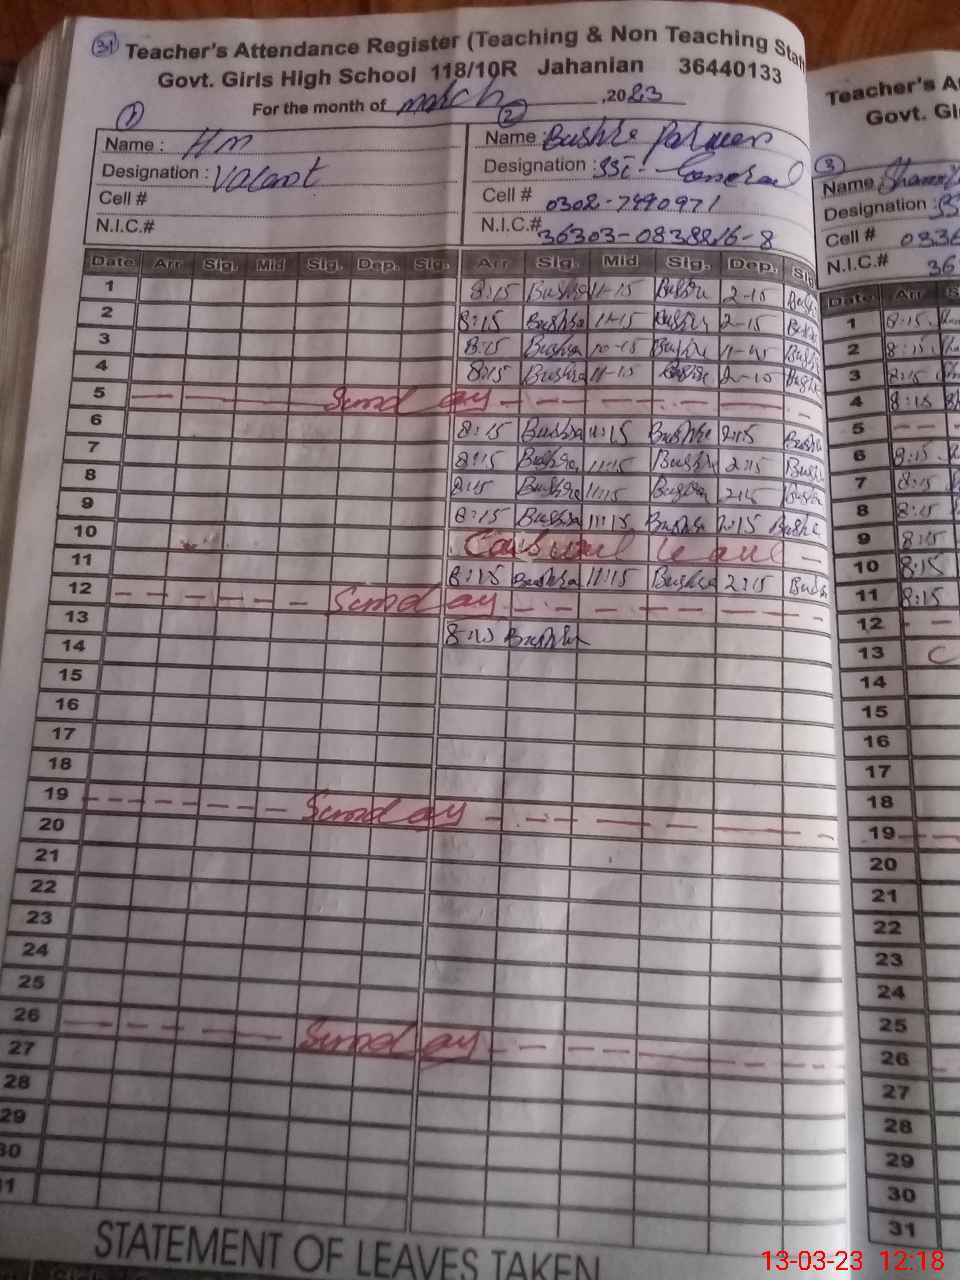 31 Teacher's Attendance Register (Teaching & Non Teaching Staff
Govt. Girls High School 118/10R Jahanian 36440133
For the month of march ,2023
1
Name : Hm
Designation : Valant
Cell #
N.I.C.#
2
Name : Bushra
Designation : SST - General
Cell # 0302-7490971
N.I.C.# 36303-0838816-8
Date Arr Sig. Mid Sig. Dep. Sig. Arr Sig. Mid Sig. Dep. Sig
1 8:15 Bushra 11-15 Bushra 2-15 Bushr
2 8:15 Bushra 11-15 Bushra 2-15 Bushr
3 8:15 Bushra 10-15 Bushra 11-45 Bushr
4 8:15 Bushra 11-15 Bushra 2-15 Bushr
5 Sunday
6 8:15 Bushra 11:15 Bushra 2:15 Bushr
7 8:15 Bushra 11:15 Bushra 2:15 Bushr
8 8:15 Bushra 11:15 Bushra 2:15 Bushr
9 8:15 Bushra 11:15 Bushra 2:15 Bushra
10 Casual leave
11 8:15 Bushra 11:15 Bushra 2:15 Bush
12 Sunday
13 8:15 Bushra
14
15
16
17
18
19 Sunday
20
21
22
23
24
25
26 Sunday
27
28
29
30
1
STATEMENT OF LEAVES TAKEN
Teacher's A
Govt. Gi
3
Name
Designation :
Cell # 033
N.I.C.# 36
Date Arr
1 8:15
2 8:15
3 8:15
4 8:15
5
6 8:15
7 8:15
8 8:15
9 8:15
10 8:15
11 8:15
12
13 C
14
15
16
17
18
19
20
21
22
23
24
25
26
27
28
29
30
31
13-03-23 12:18